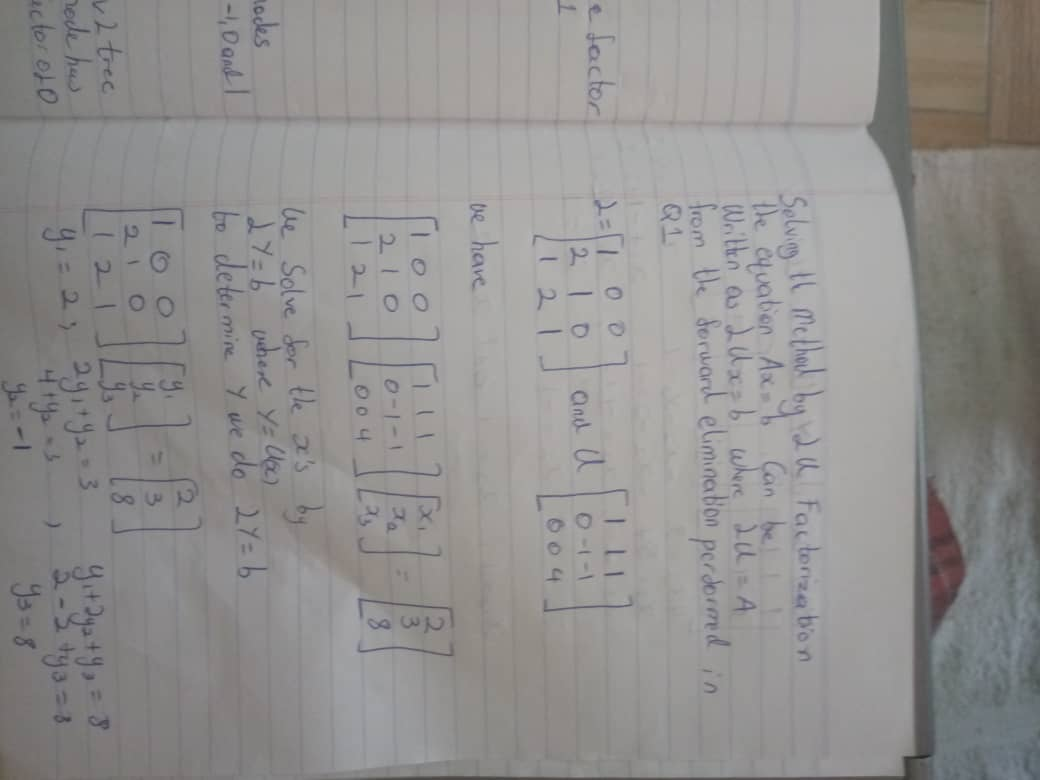 e factor
1
nodes
-1, 0 and 1
2 tree
node has
actor of 0
Solving the Method by LU Factorization
the equation Ax=b Can be
Written as LUx=b where LU=A
from the forward elimination performed in
Q1
L= [1 0 0] and U [1 1 1]
[2 1 0] [0 -1 -1]
[1 2 1] [0 0 4]
we have
[1 0 0] [1 1 1] [x₁] = [2]
[2 1 0] [0 -1 -1] [x₂] [3]
[1 2 1] [0 0 4] [x₃] [8]
We Solve for the x's by
LY=b where Y=U(x)
to determine Y we do LY=b
[1 0 0] [y₁] = [2]
[2 1 0] [y₂] [3]
[1 2 1] [y₃] [8]
y₁ = 2, 2y₁+y₂=3 y₁+2y₂+y₃=8
4+y₂=3, 2-2+y₃=8
y₂=-1 y₃=8